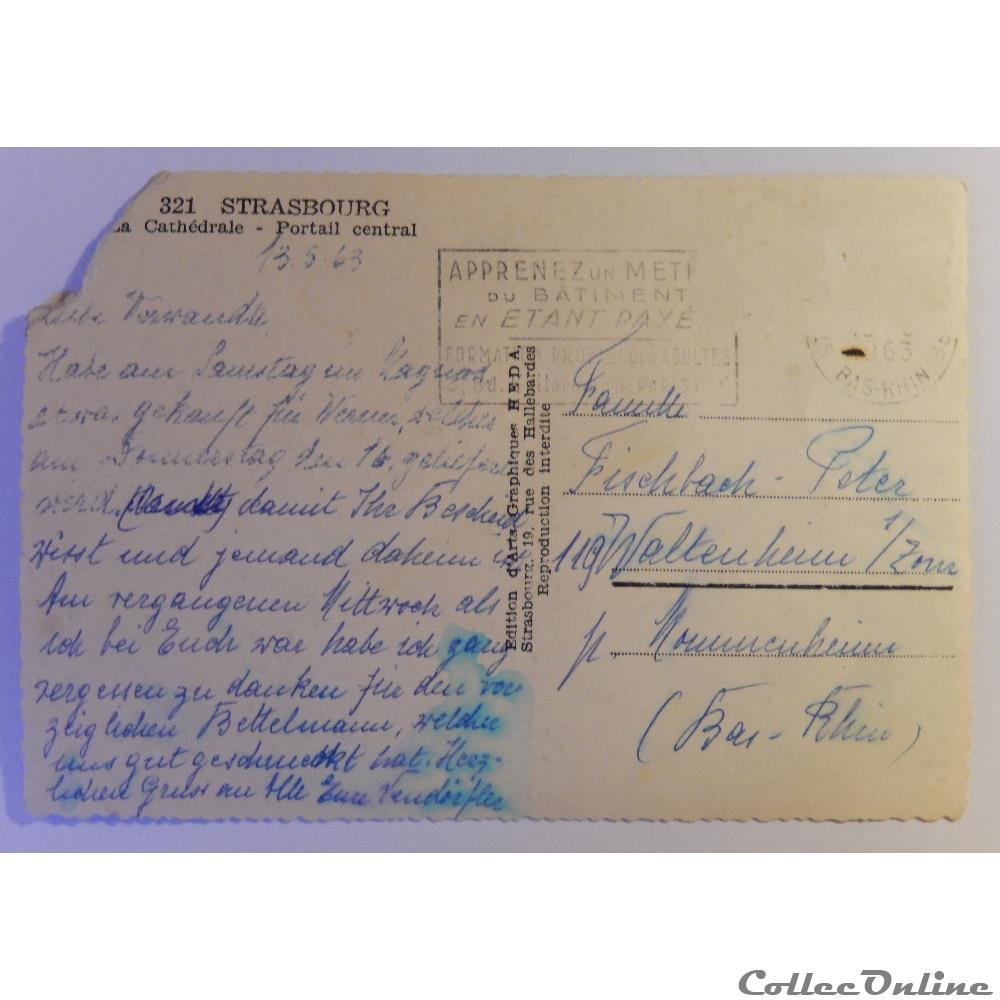 321 STRASBOURG
La Cathédrale - Portail central
13.5.63
Liebe Verwandte
Habe am Samstag im Magmod
etwas gekauft für Werner, welches
am Donnerstag den 16. geliefert
wird, damit Ihr Bescheid
wisst und jemand daheim ist
Am vergangenen Mittwoch als
ich bei Euch war habe ich ganz
vergessen zu danken für den vor
zeglichen Bettelmann, welcher
uns gut geschmeckt hat. Herz-
lichen Gruss an Alle Eure
Edition d'Arts Graphiques HEDA,
Strasbourg, 19, rue des Hallebardes
Reproduction interdite
APPRENEZ UN METI
DU BÂTIMENT
EN ETANT PAYÉ
FORMAT PROF DES ADULTES
63
BAS-RHIN
Famille
Fischbach - Peter
119 Waltenheim s/Zorn
p. Mommenheim
(Bas-Rhin)
CollecOnline